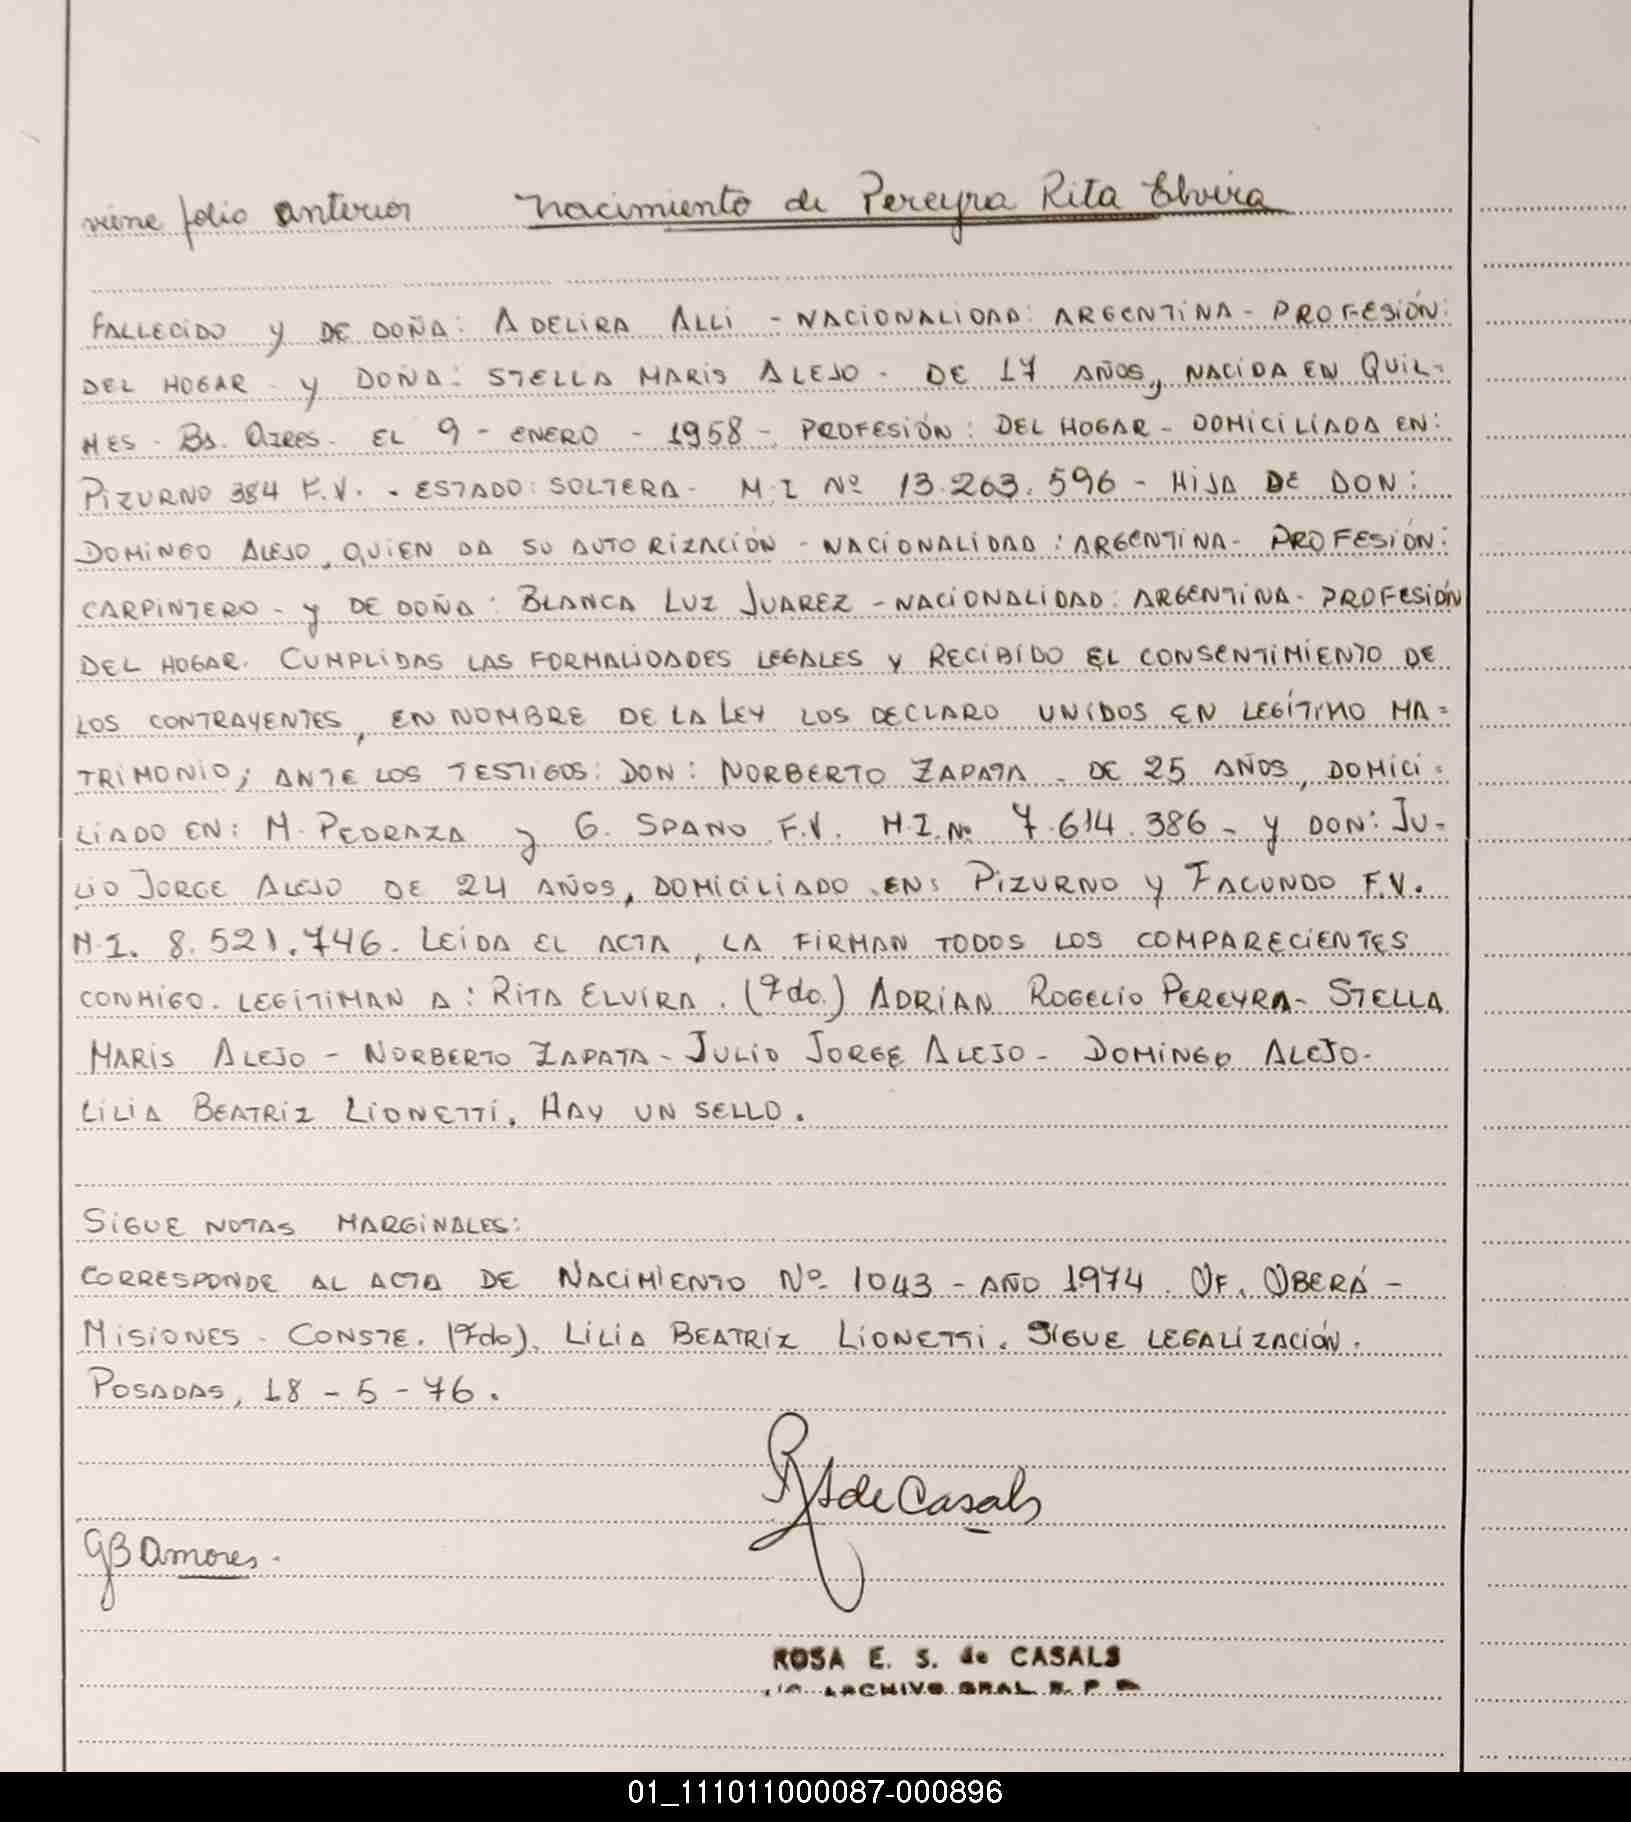 viene folio anterior nacimiento de Pereyra Rita Elvira
FALLECIDO Y DE DOÑA: ADELIRA ALLI - NACIONALIDAD: ARGENTINA - PROFESIÓN:
DEL HOGAR - Y DOÑA: STELLA MARIS ALEJO - DE 17 AÑOS, NACIDA EN QUIL=
MES - BS. AIRES - EL 9 - ENERO - 1958 - PROFESIÓN: DEL HOGAR - DOMICILIADA EN:
PIZURNO 384 F.V. - ESTADO: SOLTERA - M.I Nº 13.263.596 - HIJA DE DON:
DOMINGO ALEJO, QUIEN DA SU AUTORIZACIÓN - NACIONALIDAD: ARGENTINA - PROFESIÓN:
CARPINTERO - Y DE DOÑA: BLANCA LUZ JUAREZ - NACIONALIDAD: ARGENTINA - PROFESIÓN
DEL HOGAR. CUMPLIDAS LAS FORMALIDADES LEGALES Y RECIBIDO EL CONSENTIMIENTO DE
LOS CONTRAYENTES, EN NOMBRE DE LA LEY LOS DECLARO UNIDOS EN LEGÍTIMO MA=
TRIMONIO; ANTE LOS TESTIGOS: DON: NORBERTO ZAPATA - DE 25 AÑOS, DOMICI=
LIADO EN: M. PEDRAZA y G. SPANO F.V. M.I. Nº 7.614.386 - Y DON: JU-
LIO JORGE ALEJO DE 24 AÑOS, DOMICILIADO EN: PIZURNO Y FACUNDO F.V.
M.I. 8.521.746. LEIDA EL ACTA, LA FIRMAN TODOS LOS COMPARECIENTES
CONMIGO. LEGITIMAN A: RITA ELVIRA. (Fdo.) ADRIÁN ROGELIO PEREYRA - STELLA
MARIS ALEJO - NORBERTO ZAPATA - JULIO JORGE ALEJO - DOMINGO ALEJO.
LILIA BEATRIZ LIONETTI. HAY UN SELLO.
SIGUE NOTAS MARGINALES:
CORRESPONDE AL ACTA DE NACIMIENTO Nº 1043 - AÑO 1974. OF. OBERÁ -
MISIONES - CONSTE. (Fdo). LILIA BEATRIZ LIONETTI. SIGUE LEGALIZACIÓN.
POSADAS, 18 - 5 - 76.
de Casals
GB Amores.
ROSA E. S. de CASALS
ARCHIVO GRAL R. P. P.
01_111011000087-000896